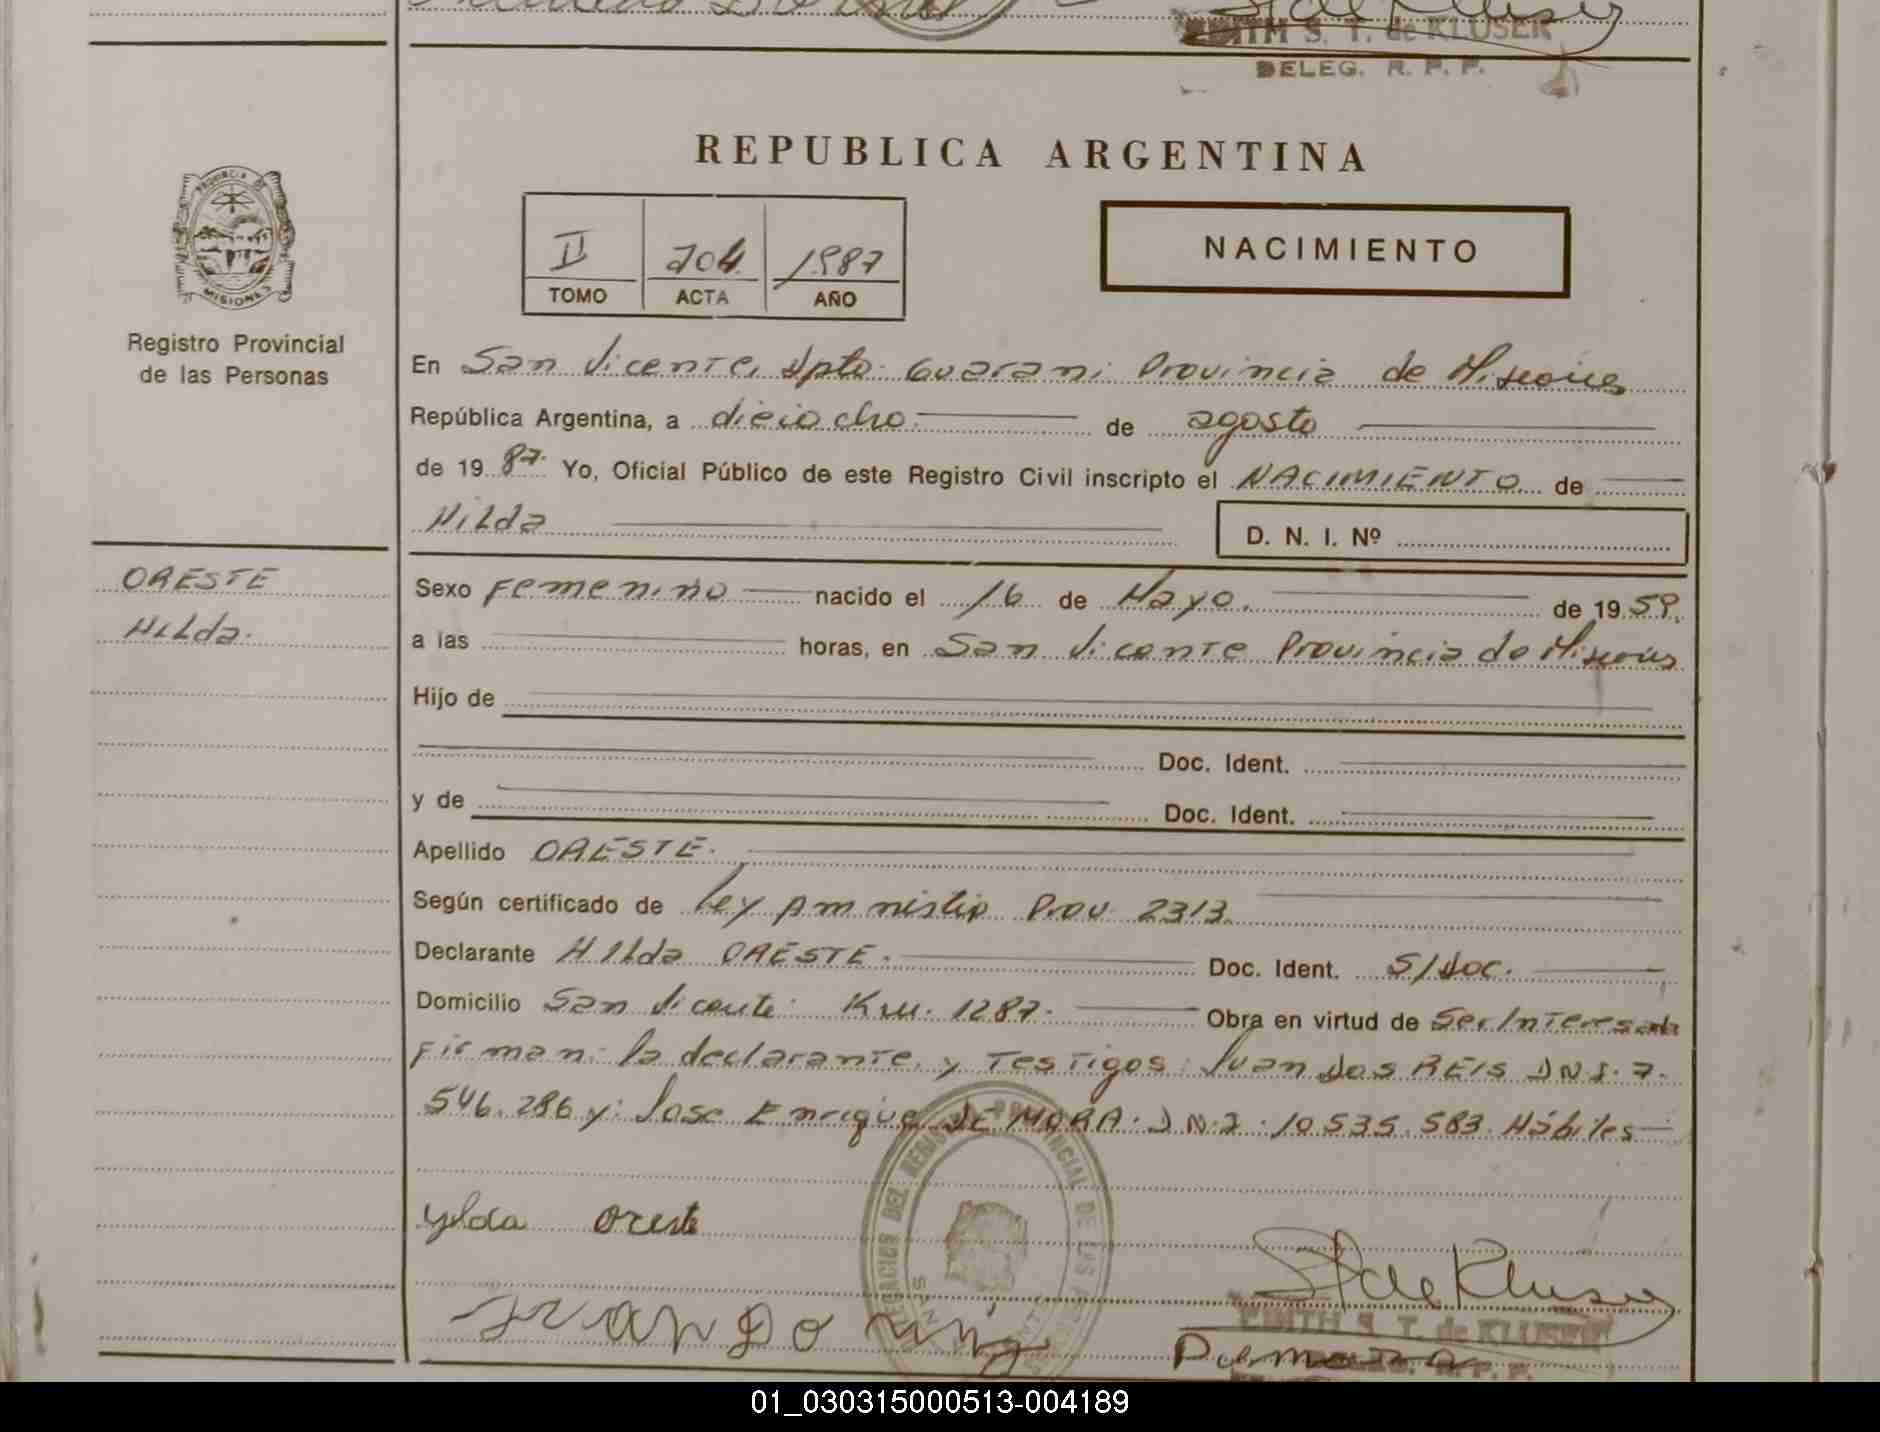 EDITH S. T. de KLUSER
DELEG. R. P. P.
REPUBLICA ARGENTINA
PROVINCIA DE MISIONES
II 704 1987
TOMO ACTA AÑO
NACIMIENTO
Registro Provincial
de las Personas
En San Vicente, Dpto. Guarani Provincia de Misiones
República Argentina, a dieciocho de agosto
de 1987. Yo, Oficial Público de este Registro Civil inscripto el NACIMIENTO de
Hilda
D. N. I. Nº
ORESTE
Hilda.
Sexo Femenino nacido el 16 de Mayo. de 1959.
a las horas, en San Vicente Provincia de Misiones
Hijo de
Doc. Ident.
y de Doc. Ident.
Apellido ORESTE.
Según certificado de Ley Amnistia Prov. 2313.
Declarante Hilda ORESTE. Doc. Ident. S/Doc.
Domicilio San Vicente Km. 1287. Obra en virtud de Ser Interesada
Firman: la declarante, y Testigos: Juan Dos REIS D.N.I. 7.
546.286 y: Jose Enrique DE MORA. D.N.I. 10.535.583. Hábiles
ylda oreste
EDITH S. T. de KLUSER
DELEG. R. P. P.
01_030315000513-004189